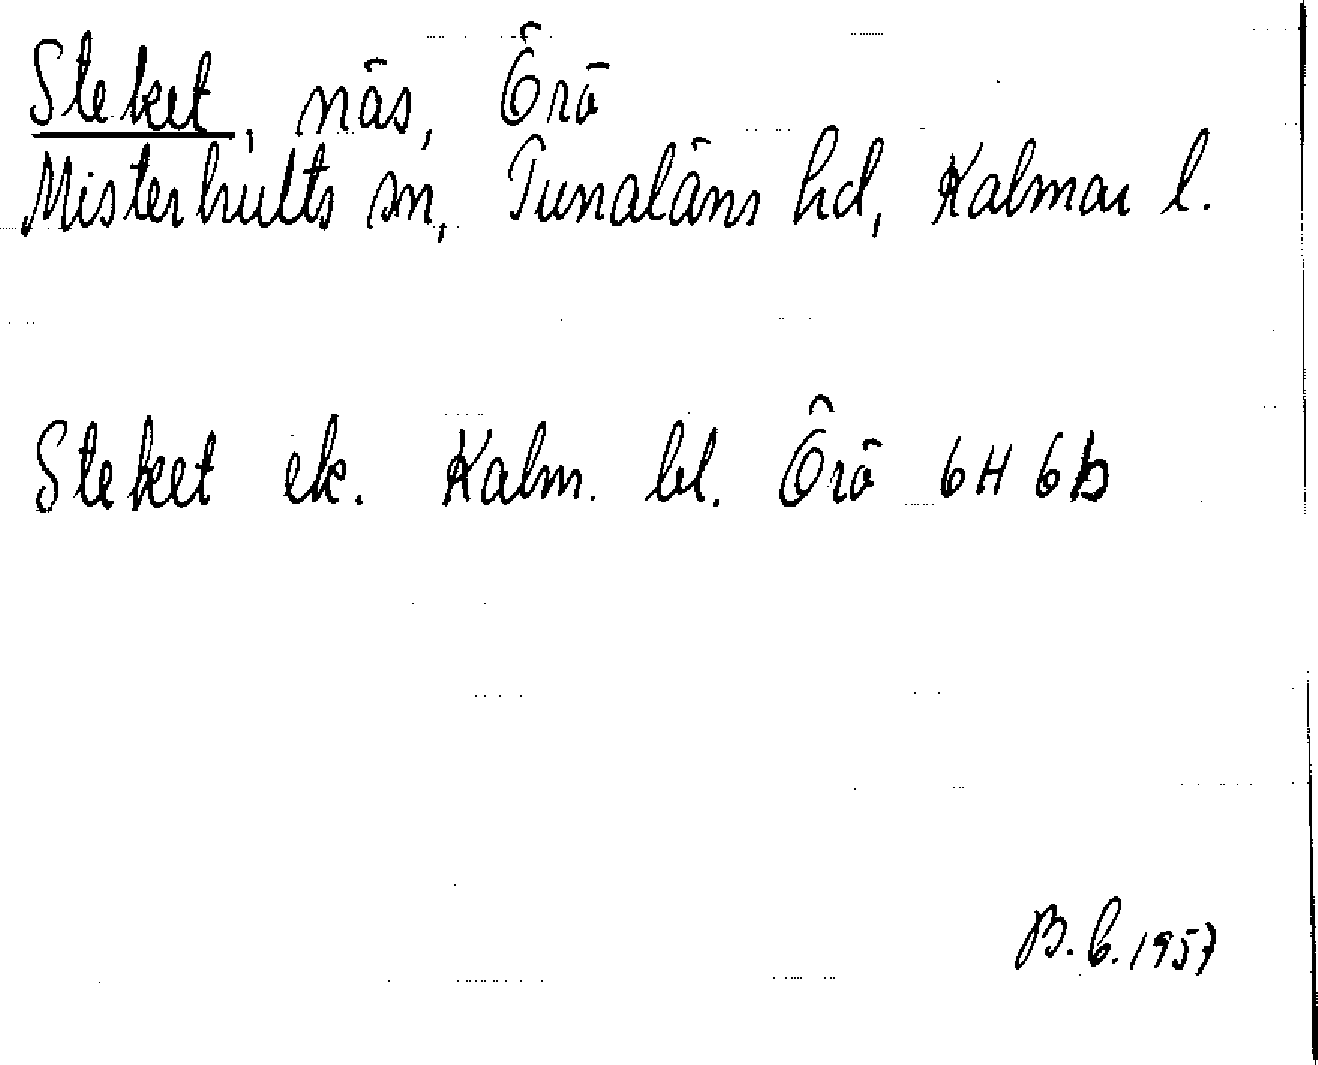 Steket, näs, Örö
Misterhults sn, Tunaläns hd, Kalmar l.
Steket ek. Kalm. bl. Örö 6H 6b
B.C. 1957